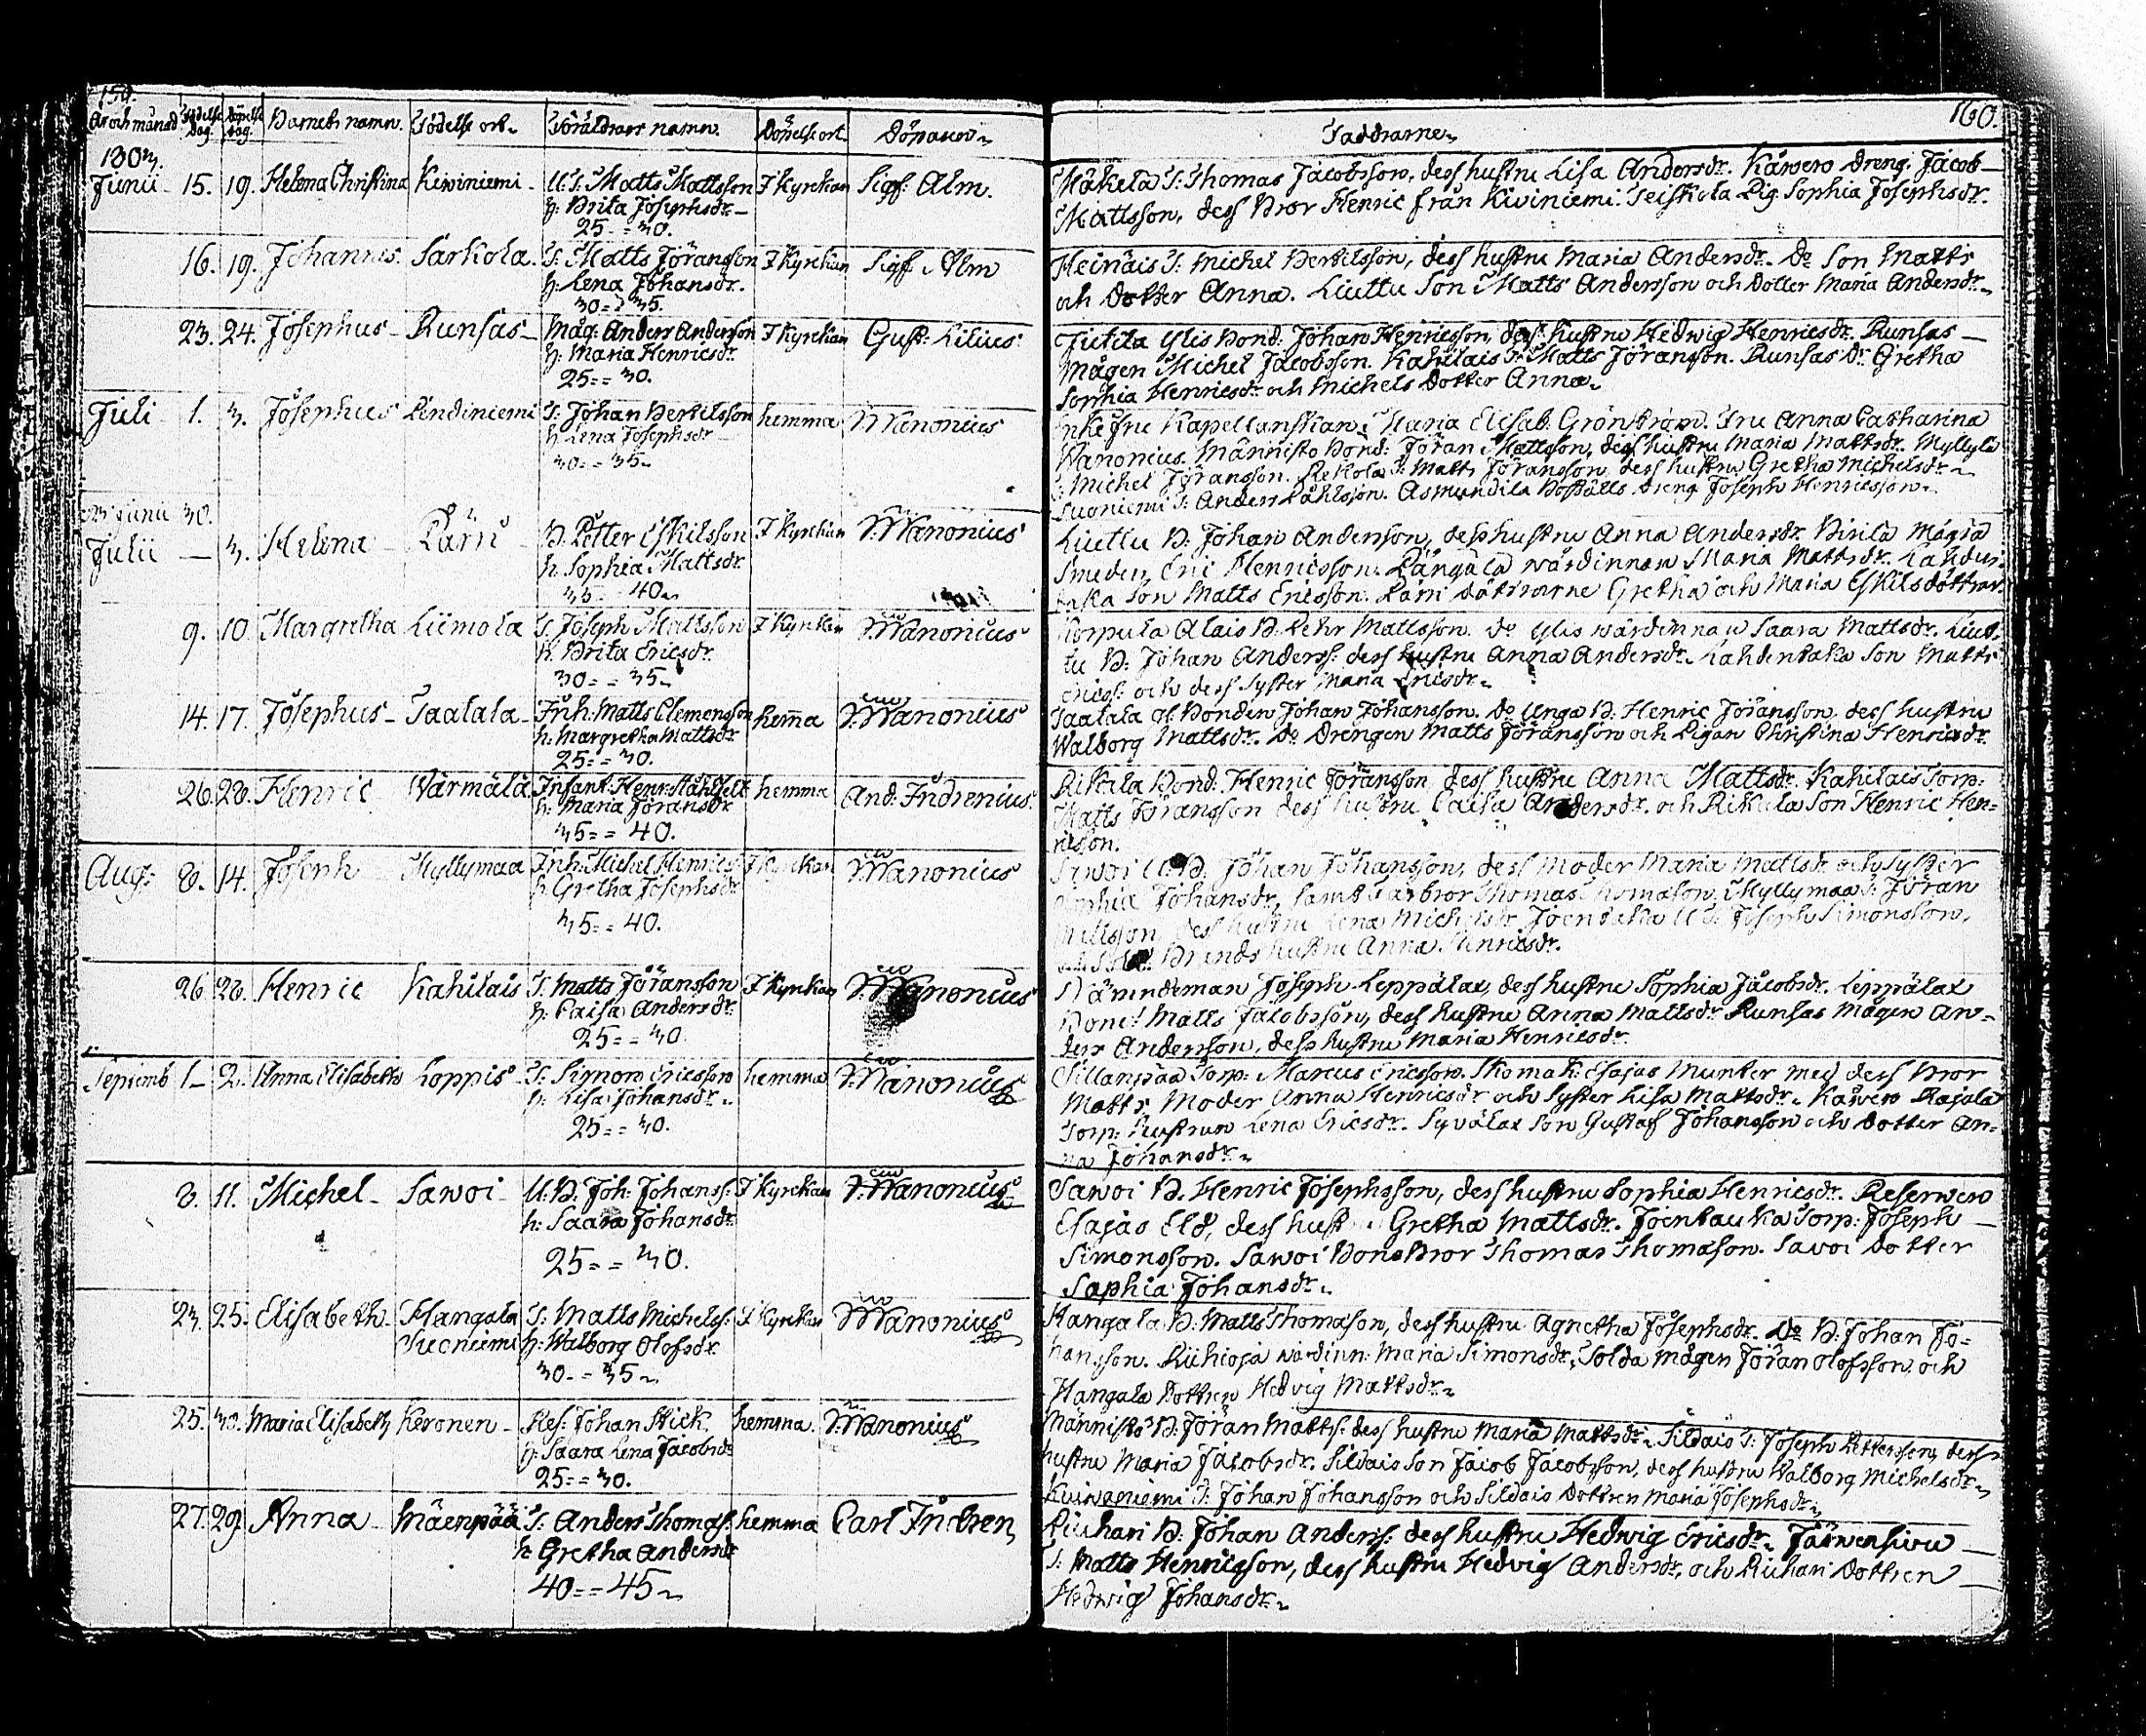 159.
160.
År och månad Födelse dag. Döpelse dag. Barnets namn. Födelse ort. Föräldrars namn. Döpelse ort. Döparen
Faddrarne
1803.
Junii 15. 19. Helena Christina Kiwiniemi U.T. Matts Mattsson I Kyrckan Sigf: Alm.
h: Brita Josephsdr
25 = = 30.
Mäkelä T. Thomas Jacobsson, dess hustru Lisa Andersdr. Käwero Dreng. Jacob
Mattsson, dess Bror Henric från Kiviniemi. Seiskola Pig. Sophia Josephsdr.
16. 19. Johannes Sarkola T. Matts Jöransson I Kyrckan Sigf. Alm
h: Lena Johansdr.
30 = 35.
Heinäis T. Michel Bertilsson, dess hustru Maria Andersdr. Do Son Matts
och Dotter Anna. Liuttu Son Matts Andersson och Dotter Maria Andersdr.
23. 24. Josephus Runsas Måg: Anders Andersson I Kyrckan Gust: Lilius
h: Maria Henricsdr.
25 = = 30.
Yliс Bond: Johan Henricsson, dess hustru Hedwig Henricsdr. Runsas
Mågen Michel Jacobsson. Kahilais T. Matts Jöransson. Runsas Dr. Gretha
Sophia Henricsdr och Michels Dotter Anna.
Juli 1. 3. Josephus Lindiniemi T. Johan Bertilsson hemma Wanonius
h: Lena Josephsdr
30 = = 35
Fru Kapellanskan Maria Elisab. Grönström. Fru Anna Catharina
Wanonius. Männistö Bond: Jöran Mattsson, dess hustru Maria Mattsdr. Myllylä
T: Michel Jöransson. Rekola T. Matts Jöransson dess hustru Gretha Michelsdr
Suoniemi T. Anders Påhlsson. Asmundila Dreng Joseph Henricsson.
Junii 30.
Julii 3. Helena Pärri B. Petter Eskilsson I Kyrckan Wanonius
h. Sophia Mattsdr.
35 = 40
Liuttu B. Johan Andersson, dess hustru Anna Andersdr. Pirilä Mågen
Smeden Eric Henricsson. Längälä wärdinnan Maria Mattsdr. Lahden-
taka Son Matts Ericsson. Pärri döttrarne Gretha och Maria Eskilsdöttrar.
9. 10 Margretha Liimola T. Joseph Mattsson I Kyrckan Wanonius
h. Brita Ericsdr.
30 = = 35
Korpula Alais B. Petter Mattsson. Do Ylis wärdinnan Saara Mattsdr. Liut-
tu B: Johan Anderss: dess hustru Anna Andersdr. Lahdentaka Son Matts
Ericss: och dess Syster Maria Ericsdr.
14. 17. Josephus Taatala Inh: Matts Clemensson hemma Wanonius
h: Margretha Mattsdr
25 = = 30.
Taatala G. Bonden Johan Johansson. Do Unga B. Henric Jöransson, dess hustru
Walborg Mattsdr. Do Drengen Matts Jöransson och Pigan Christina Henricsdr.
26. 28. Henric Wärmälä Infant: Henr: Ståhlfelt hemma And. Indrenius
h: Maria Jöransdr
35 = = 40.
Rikala Bond. Henric Jöransson dess hustru Anna Mattsdr. Kahilais Torp:
Matts Jöransson dess hustru Caisa Andersdr. och Rikala Son Henric Hen=
ricsson.
Aug: 8. 14. Joseph Myllymaa Inh: Michel Henricss: I Kyrckan Wanonius
h: Gretha Josephsdr
35 = = 40.
Sawoi U.B. Johan Johansson, dess moder Maria Mattsdr. och Syster
Sophia Johansdr, samt Farbror Thomas Thomasson. Myllymaa T: Jöran
Mattsson dess hustru Lena Michelsdr. Joentaka U.T. Joseph Simonsson,
hustru Anna Henricsdr.
26. 28. Henric Kahilais T. Matts Jöransson I Kyrckan Wanonius
h: Caisa Andersdr.
25 = = 30
Nämndeman Joseph Leppälax, dess hustru Sophia Jacobsdr. Leppälax
Bond: Matts Jacobsson, dess hustru Anna Mattsdr Runsas Mågen An-
ders Andersson, dess hustru Maria Henricsdr.
Septemb 1 2. Anna Elisabeth Loppis T. Simon Ericsson hemma Wanonius
h: Lisa Johansdr.
25 = = 30.
Sillanpää Torp: Marcus Ericsson. Esajas Munter med dess Bror
Matts Moder Anna Henricsdr och Syster Lisa Mattsdr. Käwero Rajala
Torp: hustrun Lena Ericsdr. Syvälax Son Gustaf Johansson och Dotter An=
na Johansdr.
8. 11. Michel Sawoi U.B. Joh: Johanss: I Kyrckan Wanonius
h: Saara Johansdr
25 = = 30.
Sawoi B. Henric Josephsson, dess hustru Sophia Henricsdr. Reserwen
Esajas Eld, dess hust Gretha Mattsdr. Joentauka Torp: Joseph
Simonsson. Sawoi Bond Bror Thomas Thomasson. Savoi Dotter
Sophia Johansdr.
23. 25. Elisabeth Hangala T: Matts Michelss: I Kyrckan Wanonius
Suoniemi h: Walborg Olofsdr
30 = 35
Hangala B. Matts Thomasson, dess hustru Agnetha Josephsdr. Do B. Johan Jo=
hansson. Riihioja wärdinn: Maria Simonsdr. Solda Mågen Jöran Olofsson, och
Hangala Dottren Hedvig Mattsdr.
25. 30. Maria Elisabeth Keronen Res: Johan Stick hemma. Wanonius
h: Saara Lena Jacobsdr
25 = = 30.
Männistö B: Jöran Matts: dess hustru Maria Mattsdr. Sildais T: Joseph Pettersson, dess
hustru Maria Jacobsdr. Sildais Son Jacob Jacobsson, dess hustru Walborg Michelsdr.
Kuiwaniemi T. Johan Johansson och Sildais Dottren Maria Josephsdr.
27. 29. Anna Mäenpää T: Anders Thomass: hemma Carl Indren
h: Gretha Andersdr
40 = = 45
Riuhari B: Johan Anderss: dess hustru Hedwig Ericsdr. Järwensivu
T: Matts Henricsson, dess hustru Hedvig Andersdr, och Riuhari Dottren
Hedwig Johansdr.